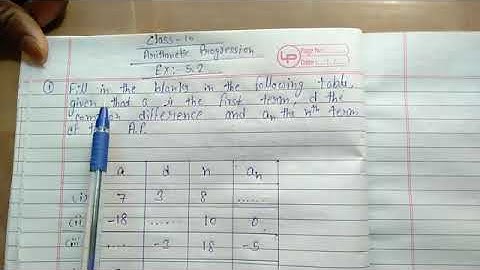 Class-10
Arithmetic Progression
Ex: 5.2
① Fill in the blanks in the following table,
given that a is the first term, d the
common difference and an the nth term
of the A.P.
a d n an
(i) 7 3 8 .....
(ii) -18 ..... 10 0
(iii) .... -3 18 -5